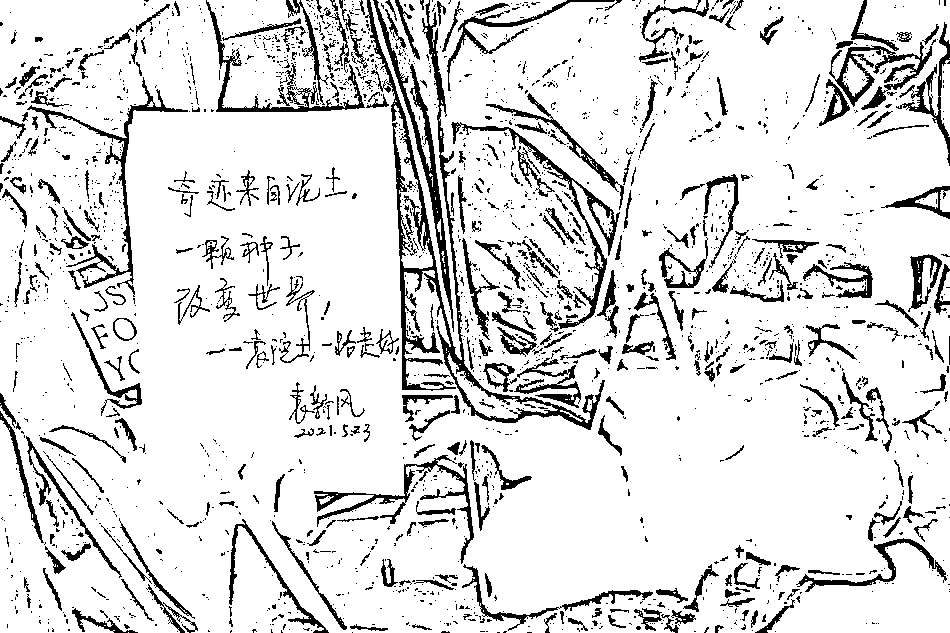 奇迹来自泥土.
一颗种子
改变世界,
——袁院士,一路走好
袁新风
2021.5.23
JS
FO
YO